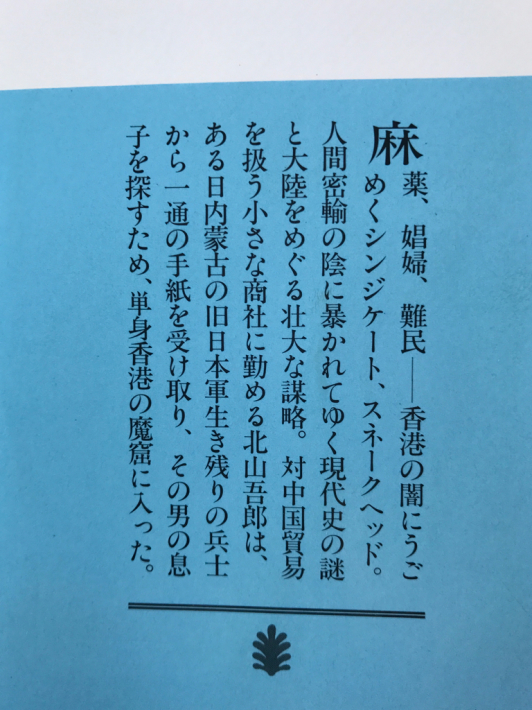 麻薬、娼婦、難民――香港の闇にうご
めくシンジケート、スネークヘッド。
人間密輸の陰に暴かれてゆく現代史の謎
と大陸をめぐる壮大な謀略。対中国貿易
を扱う小さな商社に勤める北山吾郎は、
ある日内蒙古の旧日本軍生き残りの兵士
から一通の手紙を受け取り、その男の息
子を探すため、単身香港の魔窟に入った。